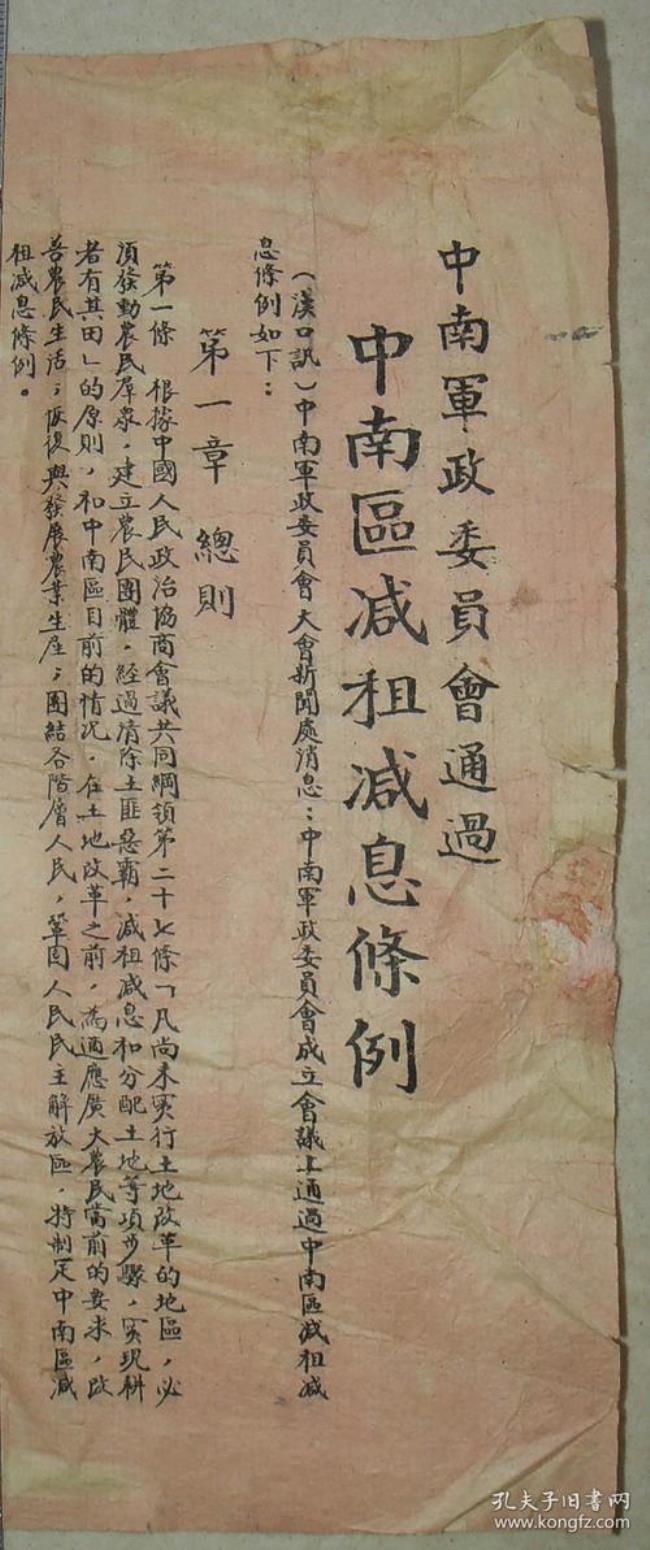 中南軍政委員會通過
中南區减租减息條例
（漢口訊）中南軍政委員會大會新聞處消息：中南軍政委員會成立會議上通過中南區减租减
息條例如下：
第一章 總則
第一條 根據中國人民政治協商會議共同綱領第二十七條「凡尚未实行土地改革的地區，必
須發動農民羣衆，建立農民團體，經過清除土匪惡霸，减租减息和分配土地等項步驟，实現耕
者有其田」的原則，和中南區目前的情况，在土地改革之前，為適應廣大農民當前的要求，改
善農民生活；恢復與發展農業生産；團結各階層人民，鞏固人民民主解放區，特制定中南區减
租减息條例。
孔夫子旧書网
www.kongfz.com